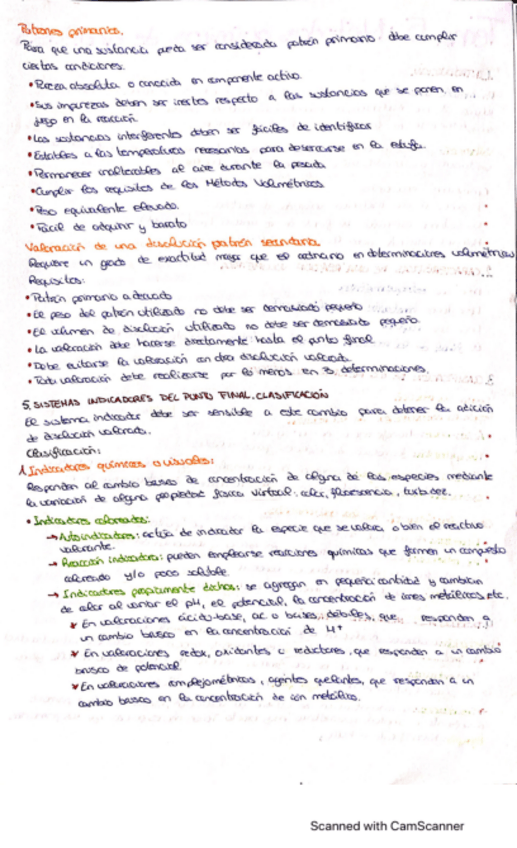 Patrones primarios.
Para que una sustancia pueda ser considerada patrón primario debe cumplir
ciertas condiciones:
• Pureza absoluta o conocida en componente activo.
• Sus impurezas deben ser inertes respecto a las sustancias que se ponen en
juego en la reacción.
• Las sustancias interferentes deben ser fáciles de identificar
• Estables a las temperaturas necesarias para desecarse en la estufa.
• Permanecer inalterables al aire durante la pesada
• Cumplir los requisitos de los Métodos Volumétricos
• Peso equivalente elevado.
• Fácil de adquirir y barato
Valoración de una disolución patrón secundaria.
Requiere un grado de exactitud mayor que el ordinario en determinaciones volumétricas
Requisitos:
• Patrón primario adecuado
• El peso del patrón utilizado no debe ser demasiado pequeño
• El volumen de disolución utilizado no debe ser demasiado pequeño.
• La valoración debe hacerse directamente hasta el punto final
• Debe evitarse la valoración con otra disolución valorada.
• Toda valoración debe realizarse por lo menos en 3 determinaciones.
5. SISTEMAS INDICADORES DEL PUNTO FINAL. CLASIFICACIÓN
El sistema indicador debe ser sensible a este cambio para detener la adición
de disolución valorada.
Clasificación:
1. Indicadores químicos o visuales:
Responden al cambio brusco de concentración de alguna de las especies mediante
la variación de alguna propiedad física virtual: color, fluorescencia, turbidez.
• Indicadores coloreados:
→ Autoindicadores: actúa de indicador la especie que se valora, o bien el reactivo
valorante.
→ Reacción indicadora: pueden emplearse reacciones químicas que formen un compuesto
coloreado y/o poco soluble.
→ Indicadores propiamente dichos: se agregan en pequeña cantidad y cambian
de color al variar el pH, el potencial, la concentración de iones metálicos etc.
* En valoraciones ácido-base, ac o bases débiles, que responden a
un cambio brusco en la concentración de H⁺
* En valoraciones redox, oxidantes o reductores, que responden a un cambio
brusco de potencial.
* En valoraciones complejométricas, agentes quelantes, que responden a un
cambio brusco en la concentración de ión metálico.
Scanned with CamScanner